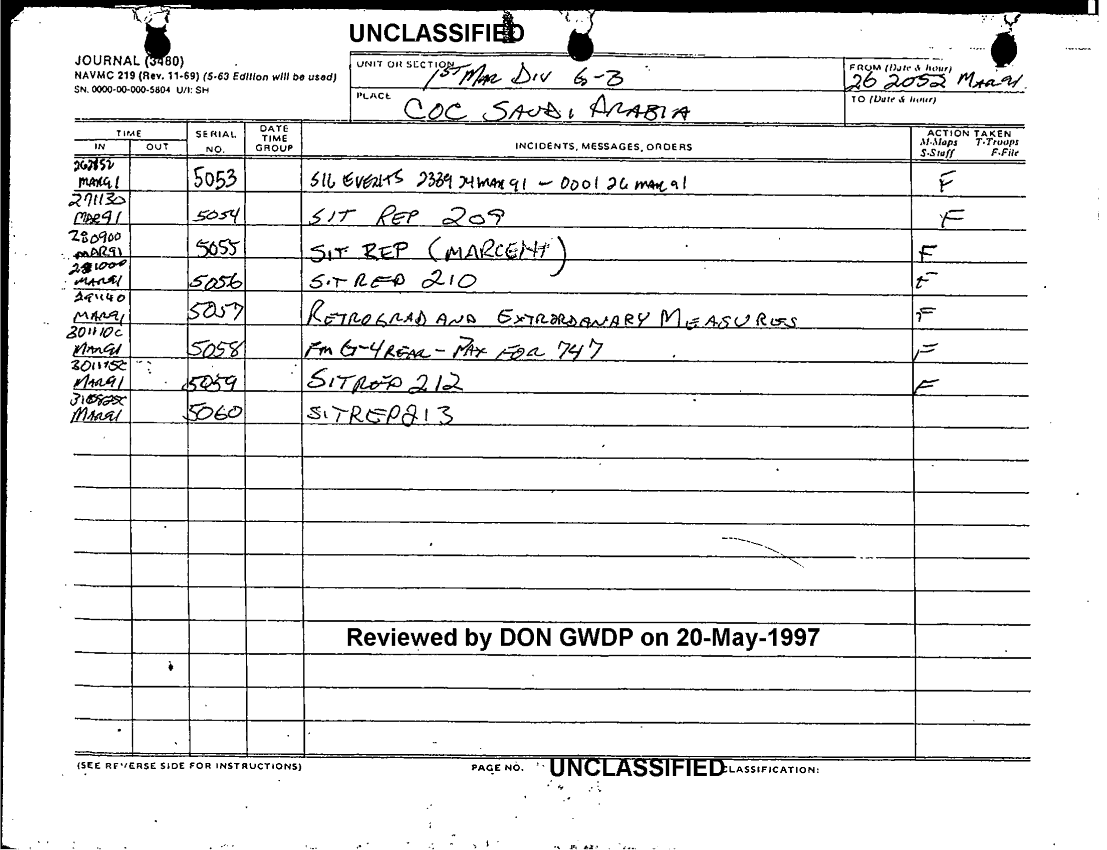 UNCLASSIFIED
JOURNAL (3480)
NAVMC 219 (Rev. 11-69) (5-63 Edition will be used)
SN. 0000-00-000-5804 U/I: SH
UNIT OR SECTION
1ST MAR DIV G-3
FROM (Date & hour)
26 2052 MAR 91
PLACE
COC SAUDI ARABIA
TO (Date & hour)
TIME
IN OUT
SERIAL NO.
DATE TIME GROUP
INCIDENTS, MESSAGES, ORDERS
ACTION TAKEN
M-Maps T-Troops
S-Staff F-File
MAR 91 5053 SIG EVENTS 2339 24 MAR 91 - 0001 26 MAR 91 F
271130
MAR 91 5054 SIT REP 209 F
280900
MAR 91 5055 SIT REP (MARCENT) F
MAR 91 5056 SIT REP 210 F
MAR 91 5057 RETROGRAD AND EXTRORDANARY MEASURES F
301110C
MAR 91 5058 FM G-4 REAR - PAX FOR 747 F
MAR 91 5059 SITREP 212 F
MAR 91 5060 SITREP 213
Reviewed by DON GWDP on 20-May-1997
(SEE REVERSE SIDE FOR INSTRUCTIONS)
PAGE NO.
UNCLASSIFIED
CLASSIFICATION: